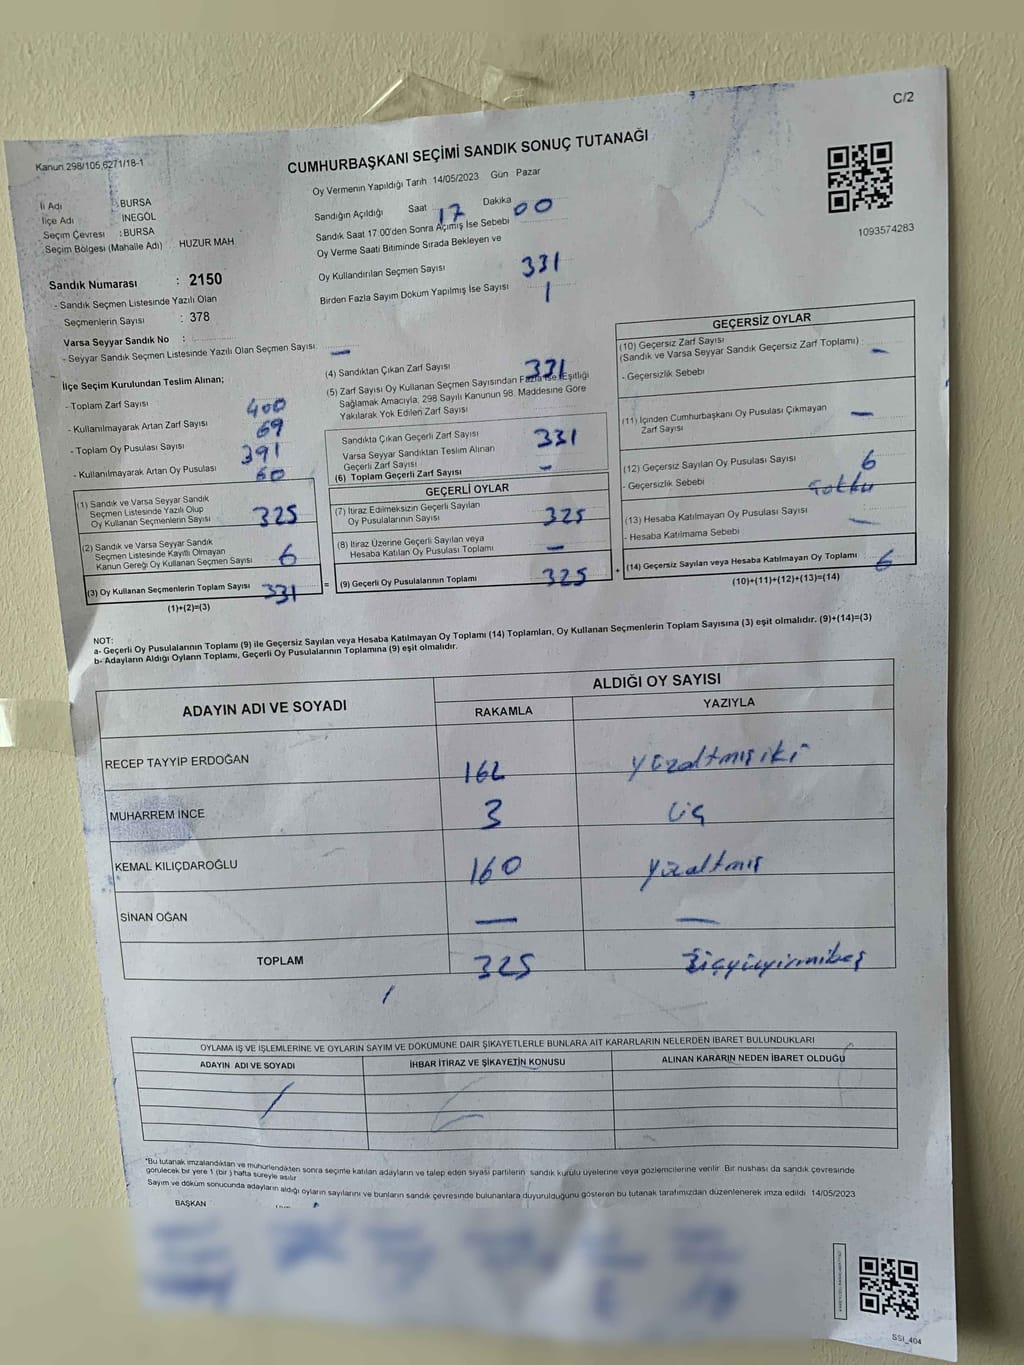 C/2
Kanun 298/105,6271/18-1
CUMHURBAŞKANI SEÇİMİ SANDIK SONUÇ TUTANAĞI
Oy Vermenin Yapıldığı Tarih 14/05/2023 Gün Pazar
İl Adı : BURSA
İlçe Adı İNEGÖL
Seçim Çevresi : BURSA
Seçim Bölgesi (Mahalle Adı) HUZUR MAH.
Sandığın Açıldığı Saat 17 Dakika 00
Sandık Saat 17.00'den Sonra Açılmış İse Sebebi
Oy Verme Saati Bitiminde Sırada Bekleyen ve
Oy Kullandırılan Seçmen Sayısı 331
Birden Fazla Sayım Döküm Yapılmış İse Sayısı 1
1093574283
Sandık Numarası : 2150
- Sandık Seçmen Listesinde Yazılı Olan
Seçmenlerin Sayısı : 378
Varsa Seyyar Sandık No :
- Seyyar Sandık Seçmen Listesinde Yazılı Olan Seçmen Sayısı: —
İlçe Seçim Kurulundan Teslim Alınan;
- Toplam Zarf Sayısı 400
- Kullanılmayarak Artan Zarf Sayısı 69
- Toplam Oy Pusulası Sayısı 391
- Kullanılmayarak Artan Oy Pusulası 60
(1) Sandık ve Varsa Seyyar Sandık
Seçmen Listesinde Yazılı Olup
Oy Kullanan Seçmenlerin Sayısı 325
(2) Sandık ve Varsa Seyyar Sandık
Seçmen Listesinde Kayıtlı Olmayan
Kanun Gereği Oy Kullanan Seçmen Sayısı 6
(3) Oy Kullanan Seçmenlerin Toplam Sayısı 331
(1)+(2)=(3)
(4) Sandıktan Çıkan Zarf Sayısı 331
(5) Zarf Sayısı Oy Kullanan Seçmen Sayısından Fazla ise, Eşitliği
Sağlamak Amacıyla, 298 Sayılı Kanunun 98. Maddesine Göre
Yakılarak Yok Edilen Zarf Sayısı
Sandıkta Çıkan Geçerli Zarf Sayısı 331
Varsa Seyyar Sandıktan Teslim Alınan
Geçerli Zarf Sayısı
(6) Toplam Geçerli Zarf Sayısı —
GEÇERLİ OYLAR
(7) İtiraz Edilmeksizin Geçerli Sayılan
Oy Pusulalarının Sayısı 325
(8) İtiraz Üzerine Geçerli Sayılan veya
Hesaba Katılan Oy Pusulası Toplamı —
= (9) Geçerli Oy Pusulalarının Toplamı 325
GEÇERSİZ OYLAR
(10) Geçersiz Zarf Sayısı
(Sandık ve Varsa Seyyar Sandık Geçersiz Zarf Toplamı) : —
- Geçersizlik Sebebi
(11) İçinden Cumhurbaşkanı Oy Pusulası Çıkmayan
Zarf Sayısı —
(12) Geçersiz Sayılan Oy Pusulası Sayısı 6
- Geçersizlik Sebebi
(13) Hesaba Katılmayan Oy Pusulası Sayısı —
- Hesaba Katılmama Sebebi
+ (14) Geçersiz Sayılan veya Hesaba Katılmayan Oy Toplamı 6
(10)+(11)+(12)+(13)=(14)
NOT:
a- Geçerli Oy Pusulalarının Toplamı (9) ile Geçersiz Sayılan veya Hesaba Katılmayan Oy Toplamı (14) Toplamları, Oy Kullanan Seçmenlerin Toplam Sayısına (3) eşit olmalıdır. (9)+(14)=(3)
b- Adayların Aldığı Oyların Toplamı, Geçerli Oy Pusulalarının Toplamına (9) eşit olmalıdır.
ADAYIN ADI VE SOYADI ALDIĞI OY SAYISI
RAKAMLA YAZIYLA
RECEP TAYYİP ERDOĞAN 162 yüzaltmışiki
MUHARREM İNCE 3 üç
KEMAL KILIÇDAROĞLU 160 yüzaltmış
SİNAN OĞAN — —
TOPLAM 325 üçyüzyirmibeş
OYLAMA İŞ VE İŞLEMLERİNE VE OYLARIN SAYIM VE DÖKÜMÜNE DAİR ŞİKAYETLERLE BUNLARA AİT KARARLARIN NELERDEN İBARET BULUNDUKLARI
ADAYIN ADI VE SOYADI İHBAR İTİRAZ VE ŞİKAYETİN KONUSU ALINAN KARARIN NEDEN İBARET OLDUĞU
*Bu tutanak imzalandıktan ve mühürlendikten sonra seçime katılan adayların ve talep eden siyasi partilerin sandık kurulu üyelerine veya gözlemcilerine verilir. Bir nushası da sandık çevresinde
görülecek bir yere 1 (bir) hafta süreyle asılır
Sayım ve döküm sonucunda adayların aldığı oyların sayılarını ve bunların sandık çevresinde bulunanlara duyurulduğunu gösteren bu tutanak tarafımızdan düzenlenerek imza edildi 14/05/2023
BAŞKAN
SSI_404